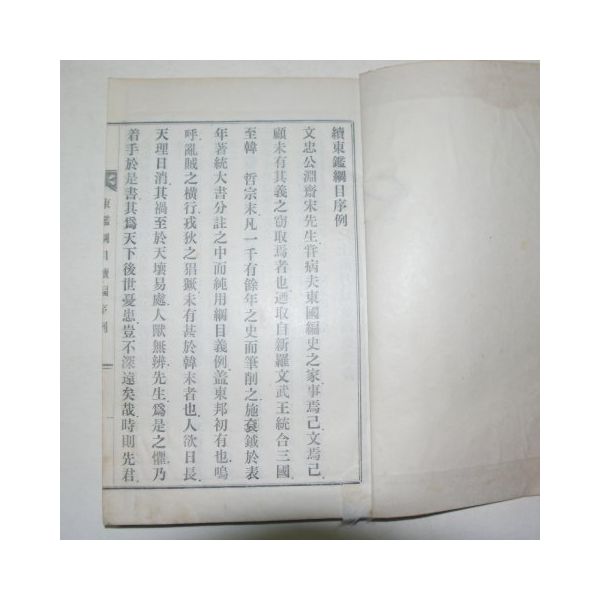 續東鑑綱目序例
文忠公淵齋宋先生甞病夫東國編史之家事焉已文焉已
顧未有其義之竊取焉者也遡取自新羅文武王統合三國
至韓 哲宗末凡一千有餘年之史而筆削之施袞鉞於表
年著統大書分註之中而純用綱目義例盖東邦初有也嗚
呼亂賊之橫行戎狄之猖獗未有甚於韓末者也人欲日長
天理日消其禍至於天壤易處人獸無辨先生爲是之懼乃
着手於是書其爲天下後世憂患豈不深遠矣哉時則先君
東鑑綱目續編序例